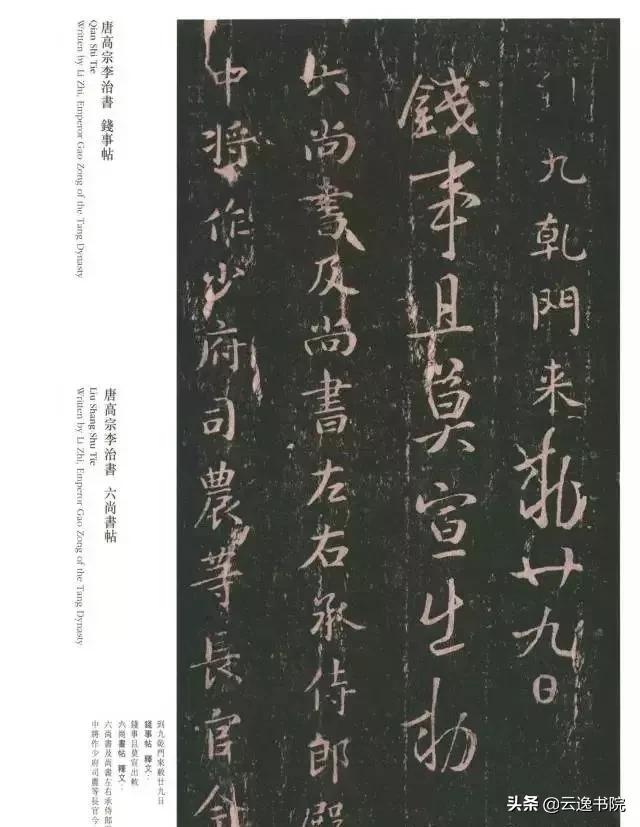 九乾門来敕廿九日
錢事且莫宣出敕
六尚書及尚書左右承侍郎殿
中将作少府司農等長官今
唐高宗李治書 錢事帖
Qian Shi Tie
Written by Li Zhi, Emperor Gao Zong of the Tang Dynasty
唐高宗李治書 六尚書帖
Liu Shang Shu Tie
Written by Li Zhi, Emperor Gao Zong of the Tang Dynasty
到九乾門來敕廿九日
錢事帖 釋文：
錢事且莫宣出敕
六尚書帖 釋文：
六尚書及尚書左右承侍郎
中將作少府司農等長官今
头条 @云逸书院